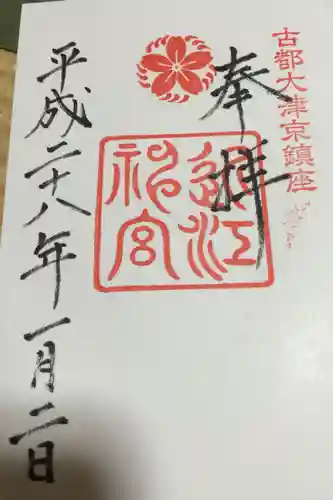 古都大津京鎮座
奉拝
近江
神宮
平成二十八年一月二日